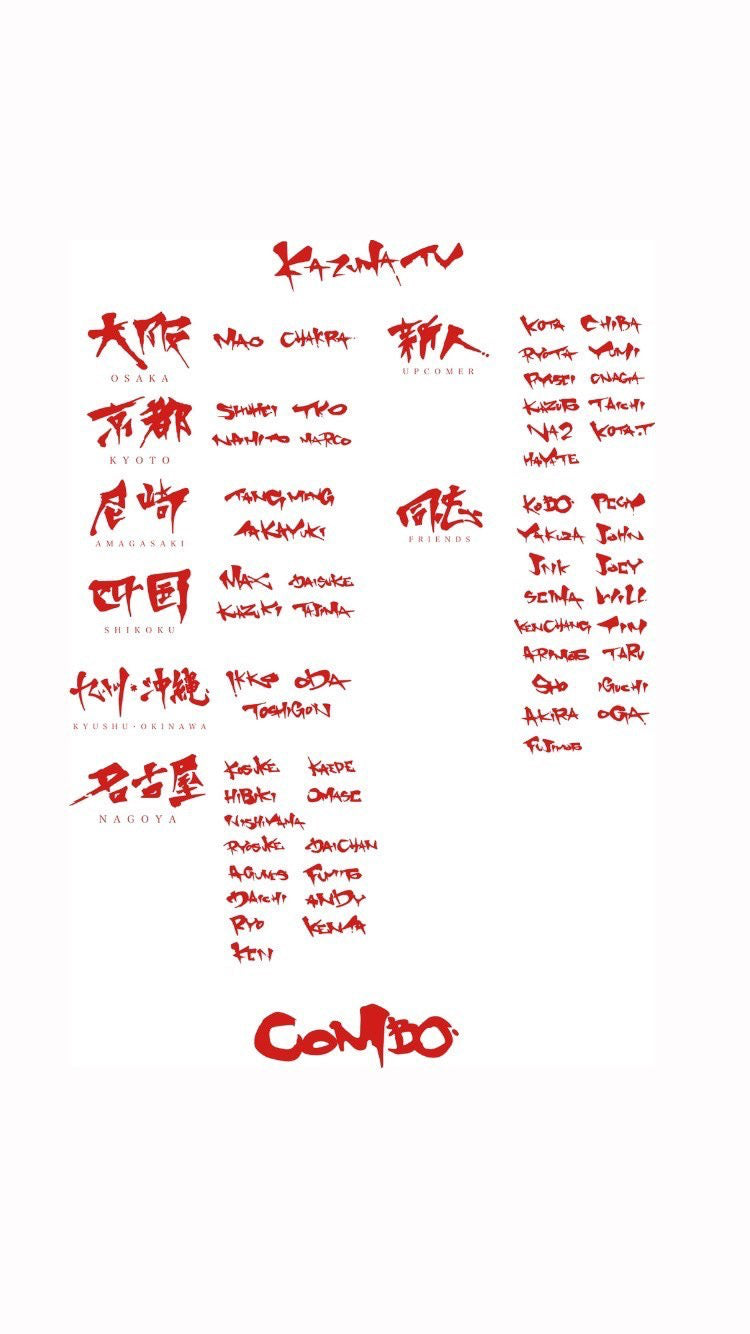 KAZUMA TV
大阪
OSAKA
MAO CHAKRA
京都
KYOTO
SHUHEI TKO
NAHITO MARCO
尼崎
AMAGASAKI
TANGMENG
TAKAYUKI
四国
SHIKOKU
MAX DAISUKE
KAZUKI TAJIMA
九州・沖縄
KYUSHU・OKINAWA
IKKO ODA
TOSHIGON
名古屋
NAGOYA
KOSUKE KAEDE
HIBIKI OMASE
NISHIYAMA
RYOSUKE DAICHAN
AGUNES FUMITO
DAICHI ANDY
RYO KENTA
KEN
新人
UPCOMER
KOTA CHIBA
RYOTA YUMI
RYUSEI ONAGA
KAZUTO TAICHI
NA2 KOTA.T
HAYATE
同志
FRIENDS
KODO PEGY
YAKUZA JOHN
JNK JOEY
SEIMA WILL
KENCHANG
TARU
SHO IGUCHI
AKIRA OGA
COMBO